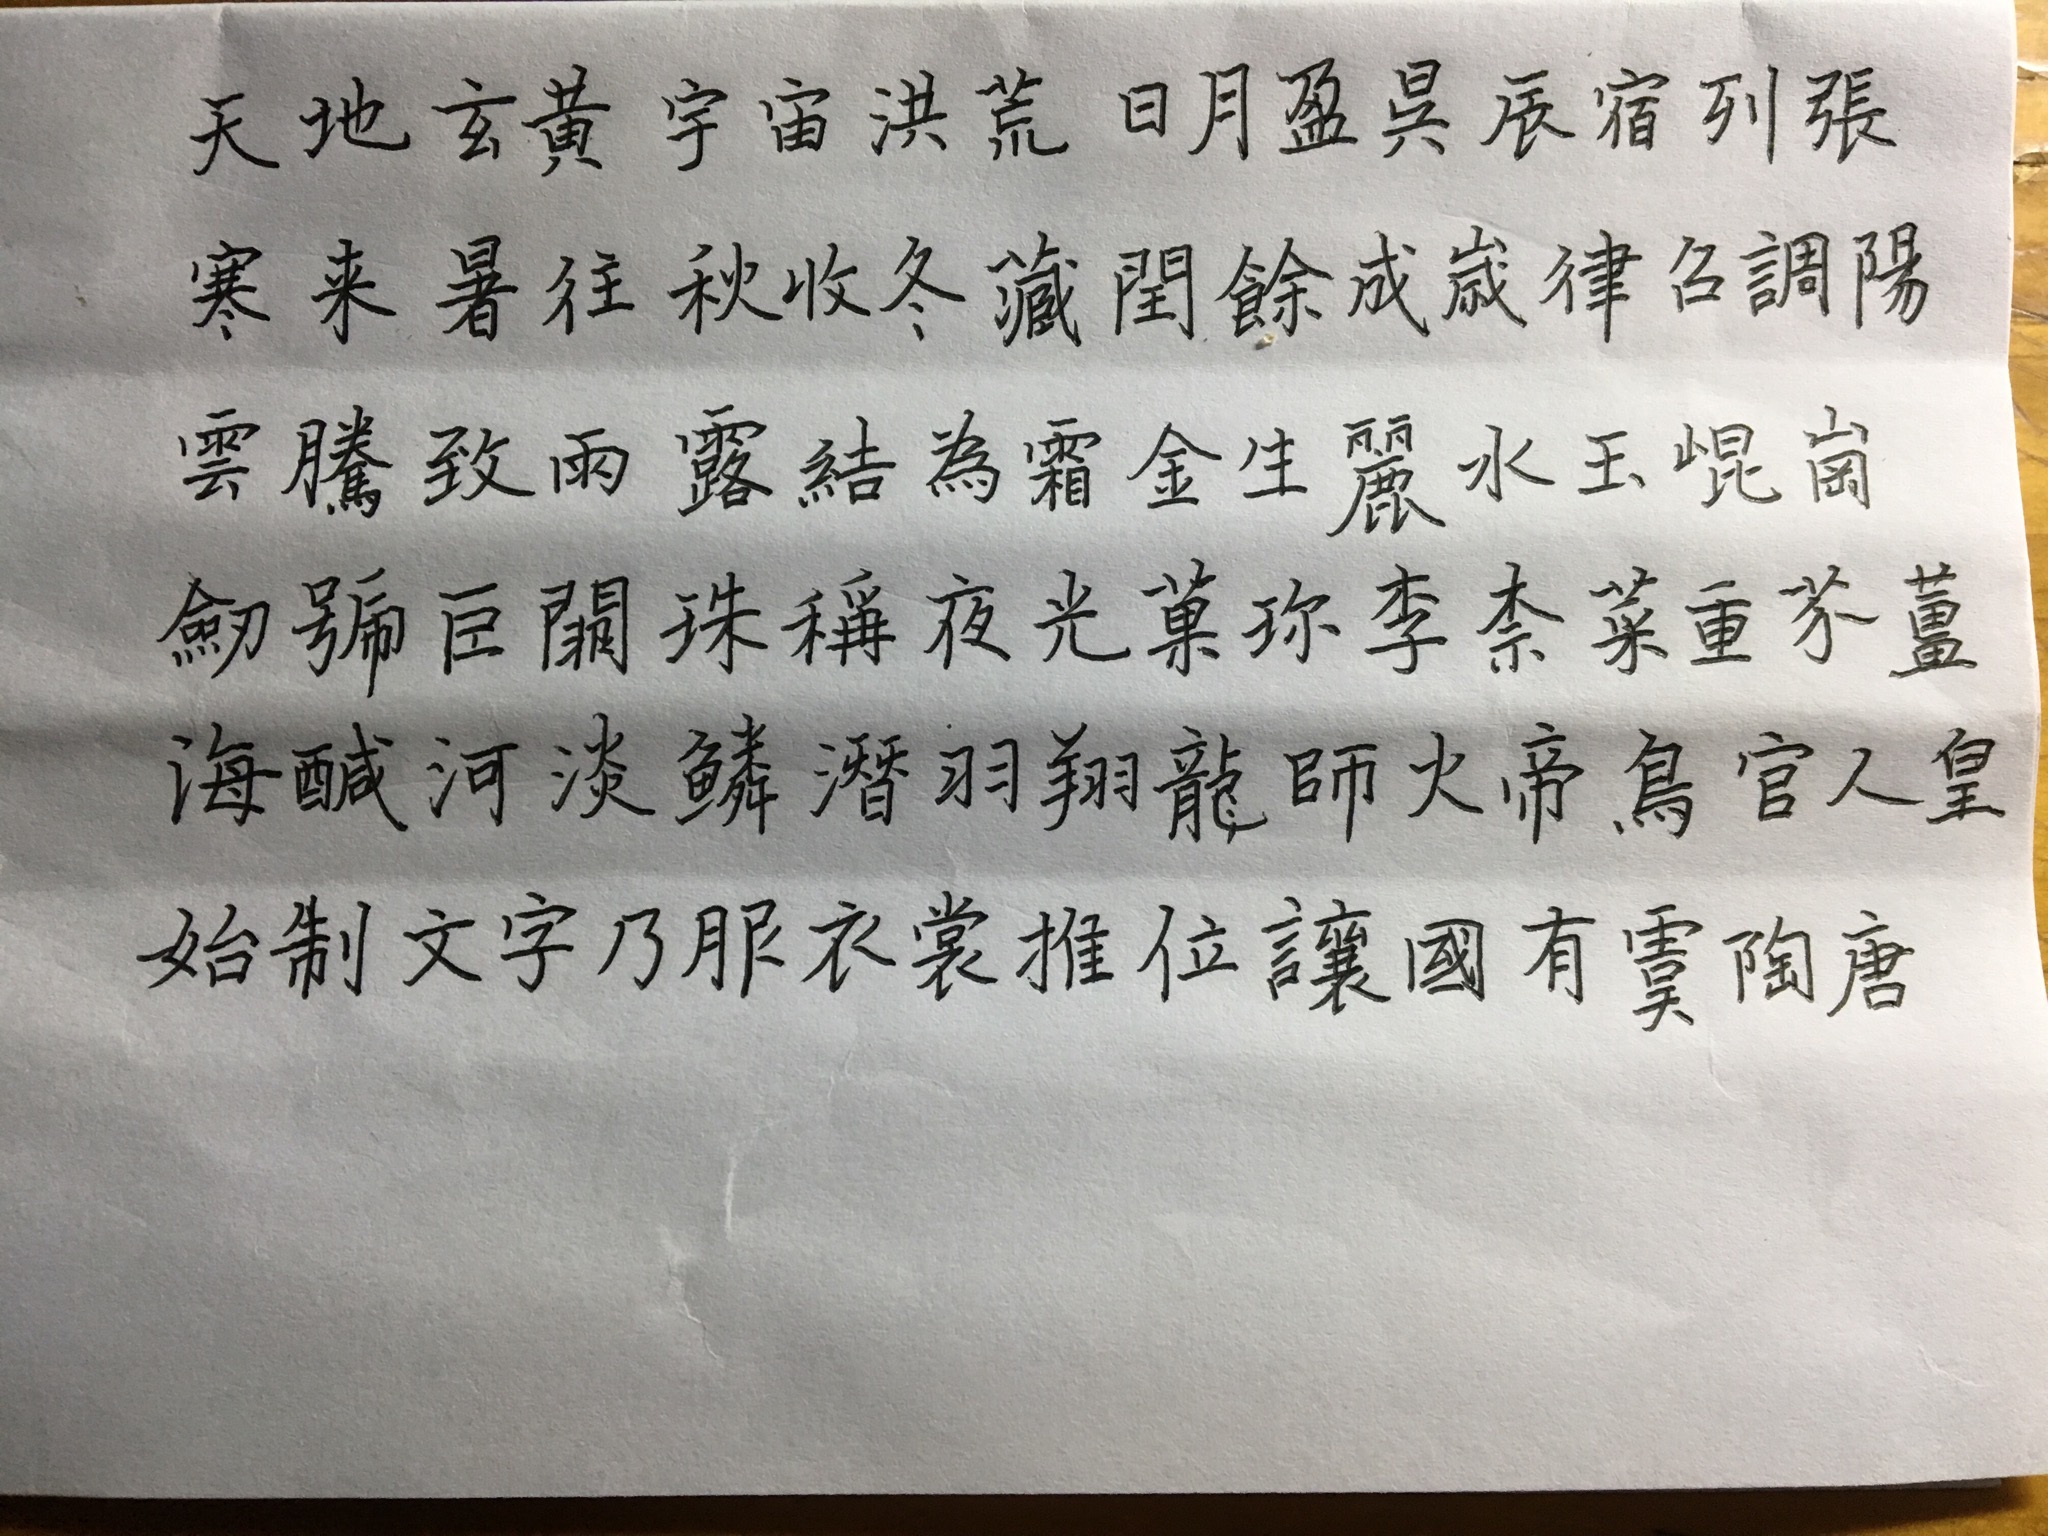 天地玄黄宇宙洪荒日月盈昃辰宿列張
寒来暑往秋收冬藏閏餘成歲律召調陽
雲騰致雨露結為霜金生麗水玉崐崗
劒號巨闕珠稱夜光菓珎李柰菜重芥薑
海醎河淡鱗潛羽翔龍師火帝鳥官人皇
始制文字乃服衣裳推位讓國有虞陶唐